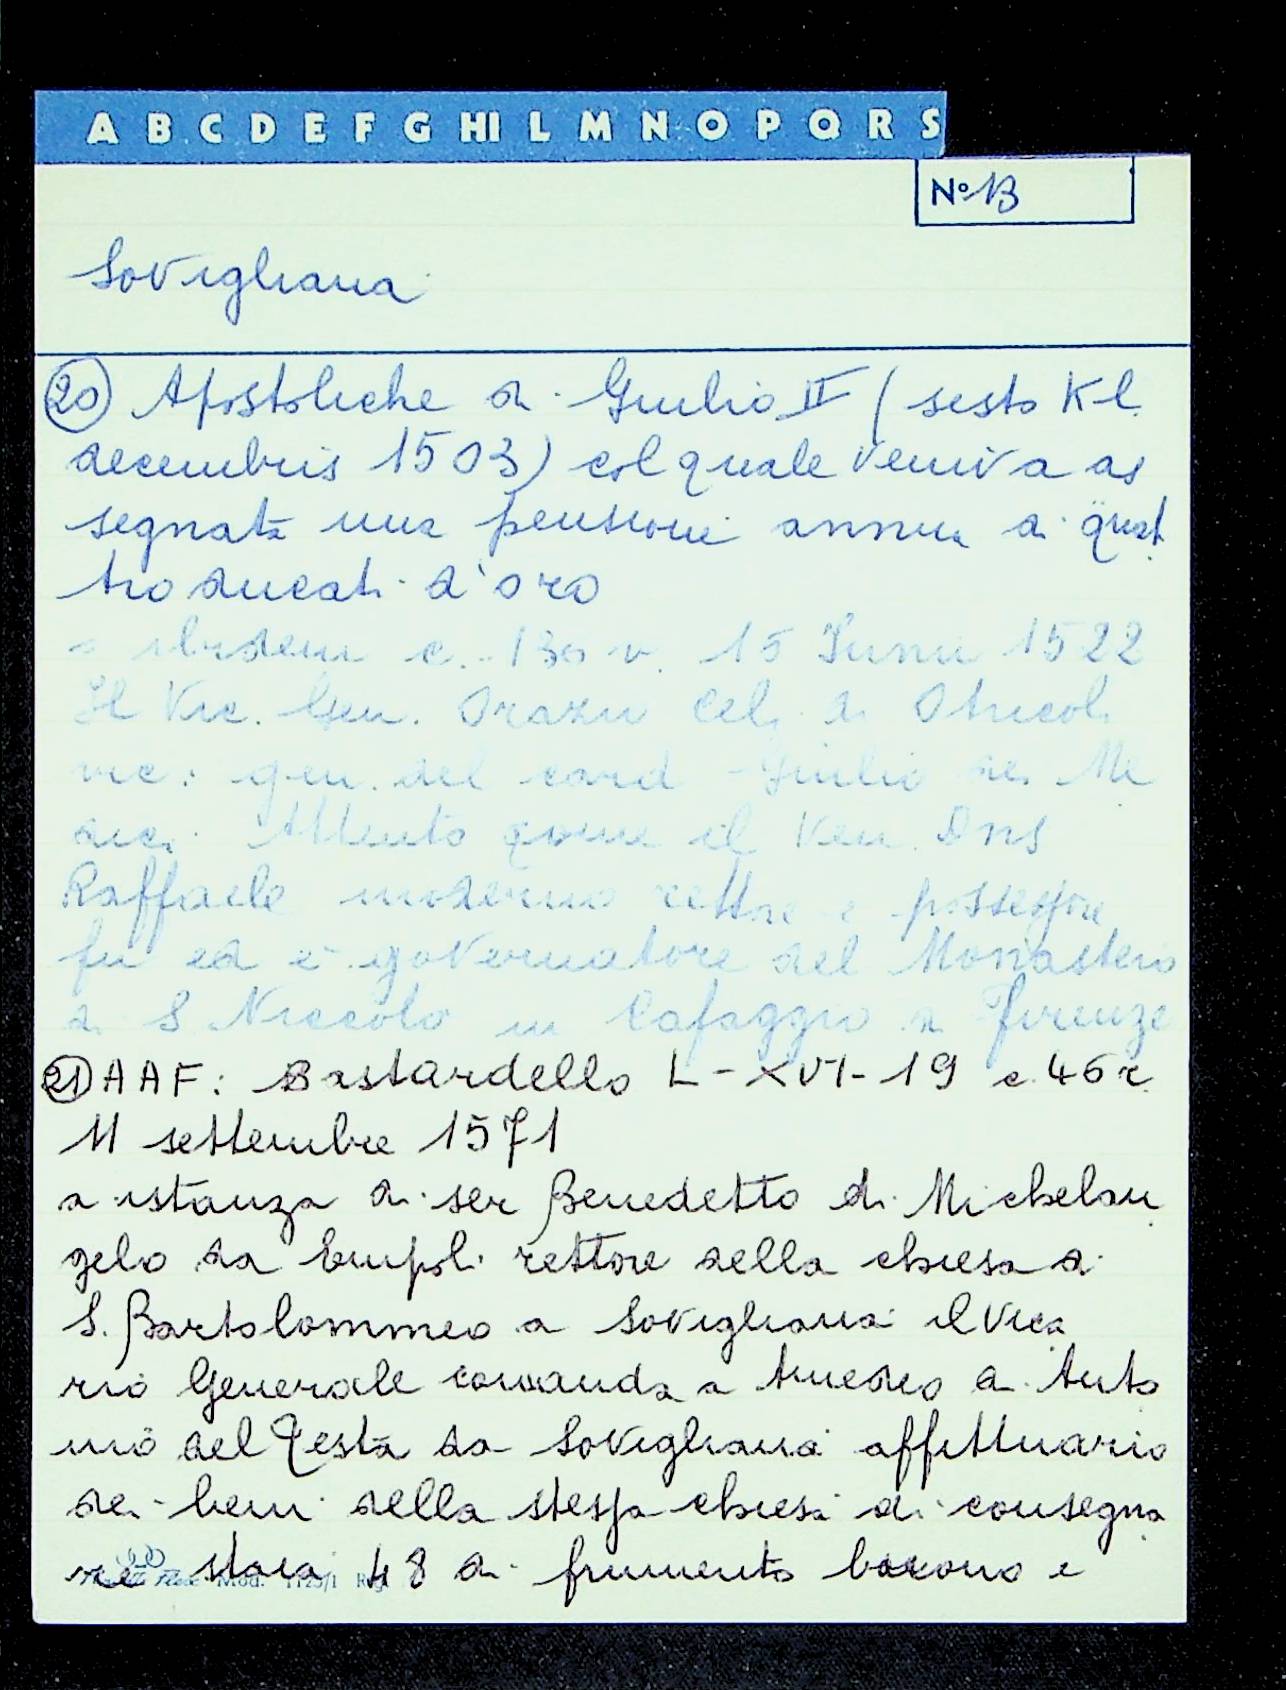 A B C D E F G HI L M N O P Q R S
N° 13
Sovigliana
20 Apostoliche di Giulio II (sesto Kl.
decembris 1503) col quale veniva as
segnata una pensione annua di quat
tro ducati d'oro
a ibidem c. 130 v. 15 Junii 1522
Il Vic. Gen. Orazii Cel. di Otricoli
vic. gen. del card Giulio de Me
dici. Attento come il Ven. Dns
Raffaele moderno rettore e possessore
fu ed è governatore del Monastero
di S Niccolo in Cafaggio a Firenze
21 AAF: Bastardello L-XVI-19 c. 46 r
11 settembre 1571
a istanza di ser Benedetto di Michelan
gelo da Empoli rettore della chiesa di
S. Bartolommeo a Sovigliana il Vica
rio Generale comanda a Amedeo di Anto
nio del Testa da Sovigliana affittuario
dei beni della stessa chiesa di consegna
re staia 48 di frumento buono e
Mod. 1125/1